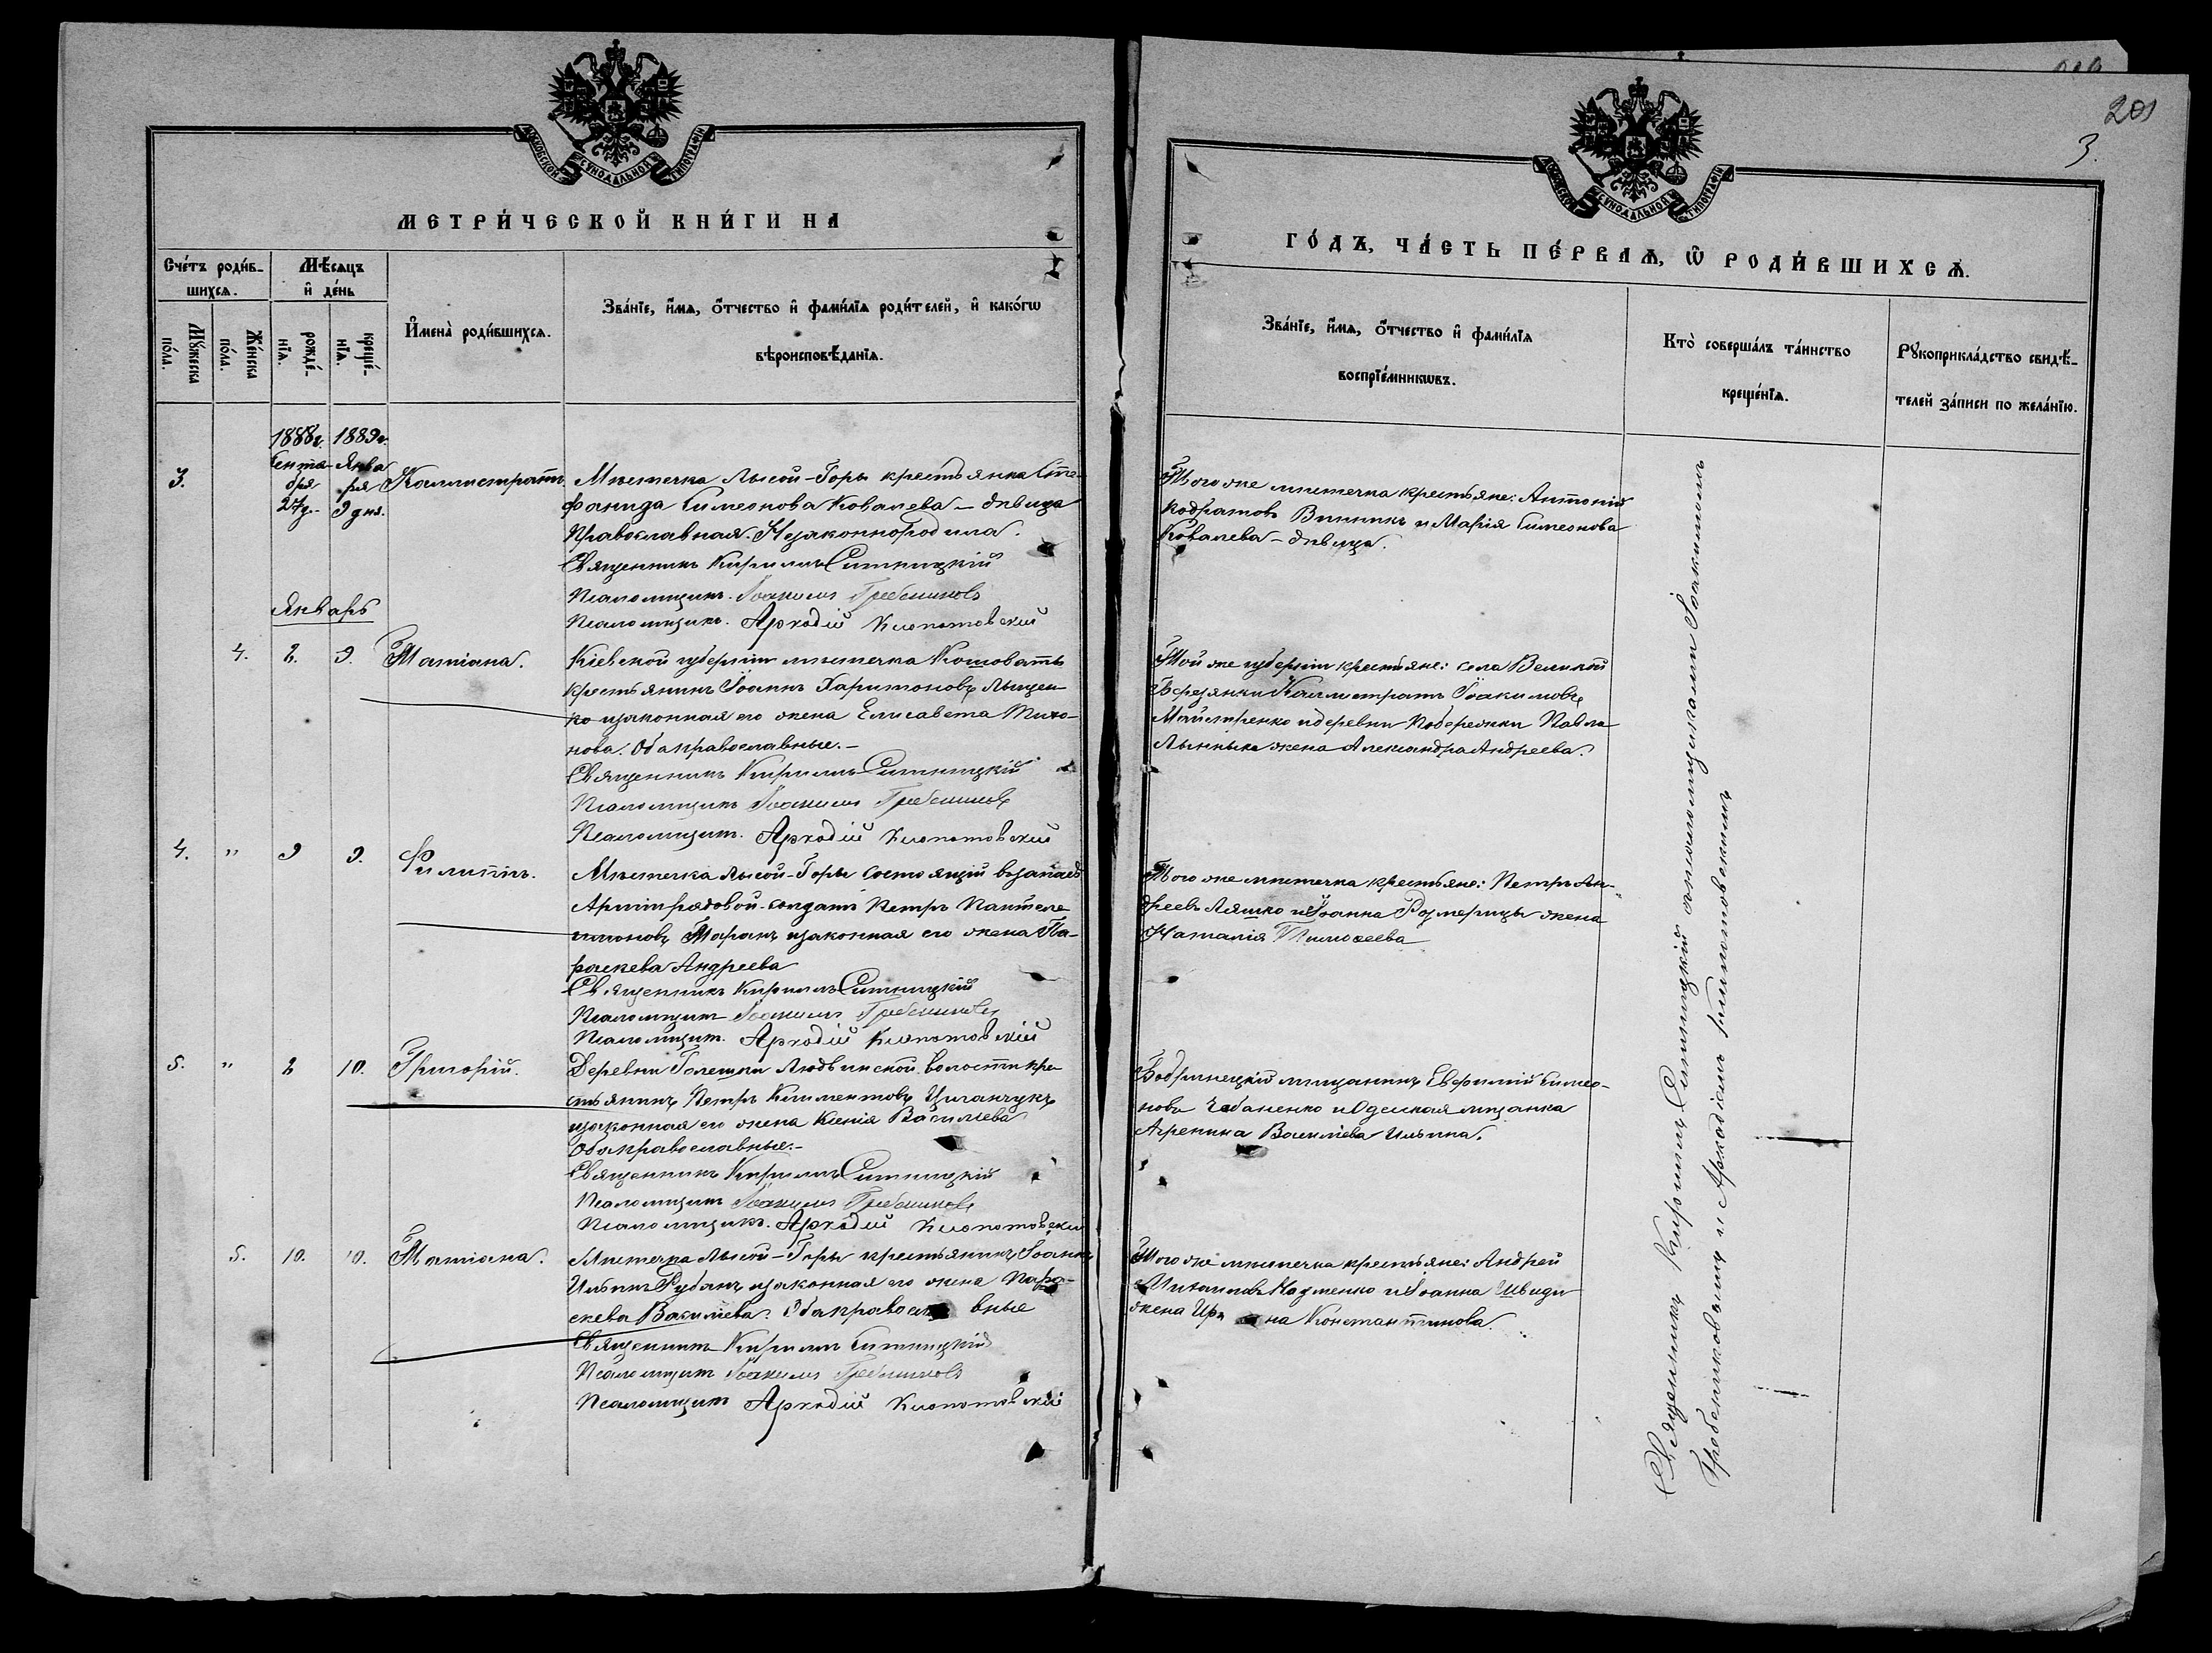 МОСКОВСКОЙ СѴНОДАЛЬНОЙ ТИПОГРАФІИ
МЕТРИ́ЧЕСКОЙ КНИ́ГИ НА
Сче́тъ роди́в-
шихсѧ.
Мѣ́сѧцъ
и҆ де́нь
Мꙋ́жеска
по́ла.
Же́нска
по́ла.
рожде́-
нїѧ.
креще́-
нїѧ.
И҆мена̀ роди́вшихсѧ.
Зва́нїе, и҆́мѧ, ѻ҆́тчество и҆ фами́лїѧ роди́телей, и҆ како́гѡ
вѣроисповѣ́данїѧ.
3.
1888г. 1889г.
Сентя- Янва
бря ря
27д. 9 дня.
Каллистратъ
Мѣстечка Лысой-Горы крестьянка Сте-
фанида Симеонова Ковалева - дѣвица
Православная. Незаконнородила.
Священникъ Кириллъ Ситницкій
Псаломщикъ. Іоакимъ Гребениковъ
Псаломщикъ. Аркадій Клопотовскій
Январь
4. 2. 9. Татіана.
Кіевской губерніи мѣстечка Кошоватъ
крестьянинъ Іоаннъ Харитоновъ Лыщен-
ко изаконная его жена Елисавета Тихо-
нова. Оба православные.-
Священникъ Кириллъ Ситницкій
Псаломщикъ Іоакимъ Гребениковъ
Псаломщикъ. Аркадій Клопотовскій
4. " 9 9. Филиппъ.
Мѣстечка Лысой-Горы состоящій взапасѣ
Арміи рядовой-солдатъ Петръ Пантеле
имоновъ Таранъ изаконная его жена Па-
раскева Андреева
Священникъ Кириллъ Ситницкій
Псаломщикъ Іоакимъ Гребениковъ
Псаломщикъ. Аркадій Клопотовскій
5. " 2 10. Григорій.
Деревни Голешки Людвинской волости кре-
стьянинъ Петръ Климентовъ Циганчукъ
изаконная его жена Ксенія Васильева
Оба православные.-
Священникъ Кириллъ Ситницкій
Псаломщикъ Іоакимъ Гребениковъ
Псаломщикъ. Аркадій Клопотовскій
5. 10. 10. Татіана.
Мѣстечка Лысой-Горы крестьянинъ Іоаннъ
Ильинъ Рубанъ изаконная его жена Пара-
скева Васильева. Оба православные
Священникъ Кириллъ Ситницкій
Псаломщикъ Іоакимъ Гребениковъ
Псаломщикъ Аркадій Клопотовскій
201
3.
МОСКОВСКОЙ СѴНОДАЛЬНОЙ ТИПОГРАФІИ
ГО́ДЪ, ЧА́СТЬ ПЕ́РВАѦ, Ѡ҆ РОДИ́ВШИХСѦ.
Зва́нїе, и҆́мѧ, ѻ҆́тчество и҆ фами́лїѧ
воспрїе́мникѡвъ.
Кто̀ соверша́лъ та́инство
креще́нїѧ.
Рꙋкоприкла́дство свидѣ́-
телей за́писи по жела́нїю.
Того же мѣстечка крестьяне: Антоній
Кодратовъ Винникъ и Марія Симеонова
Ковалева - дѣвица.
Той же губерніи крестьяне: села Великой
Березянки Каллистратъ Іоакимовъ
Майстренко и деревни Побережки Павла
жена Александра Андреева.
Того же мѣстечка крестьяне: Петръ Ан-
дреевъ Ляшко и Іоанна Розмерицы жена
Наталія Тимоѳеева
Бобринецкій мѣщанинъ Евфимій Симео-
новъ Чабаненко и Одесская мѣщанка
Агрепина Васильева Ильина.
Того же мѣстечка крестьяне: Андрей
Михаиловъ Науменко и Іоанна Швиди
жена Ирина Константинова.
Священникъ Кириллъ Ситницкій съ псаломщиками Іоакимомъ
Гребениковымъ и Аркадіемъ Клопотовскимъ